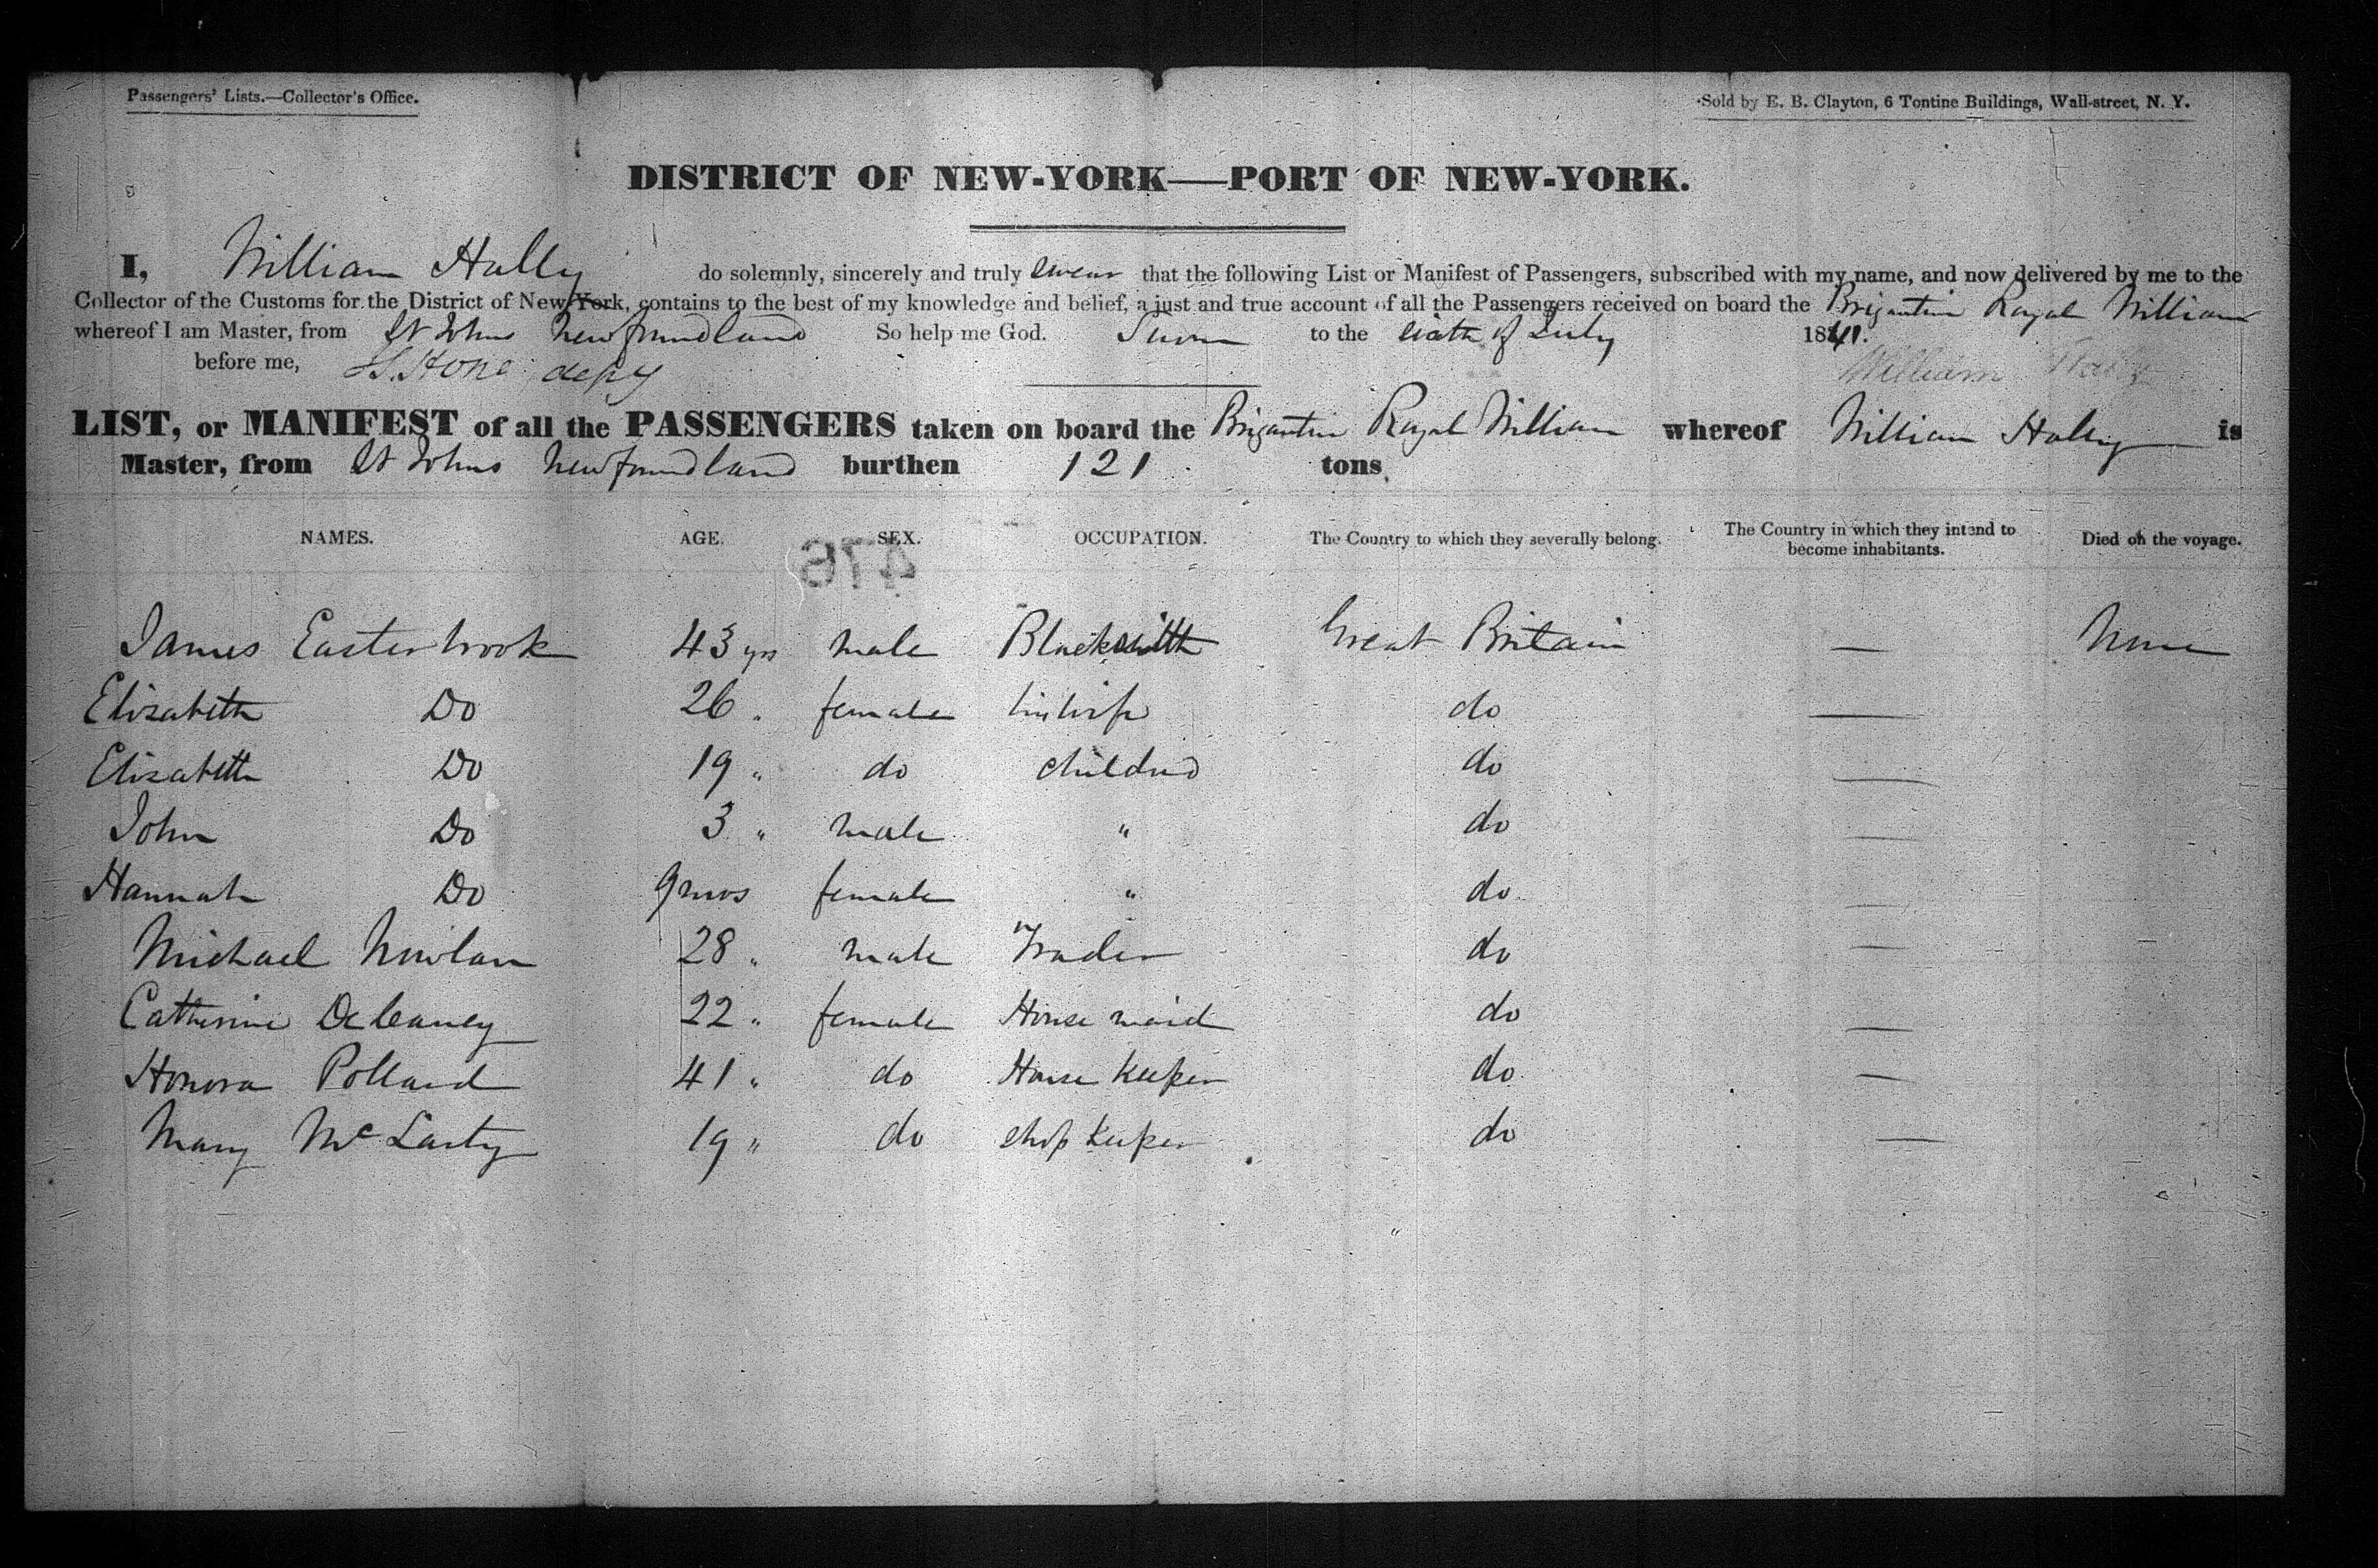 Passengers' Lists.—Collector's Office.
Sold by E. B. Clayton, 6 Tontine Buildings, Wall-street, N. Y.
DISTRICT OF NEW-YORK—PORT OF NEW-YORK.
I, William Hally do solemnly, sincerely and truly swear that the following List or Manifest of Passengers, subscribed with my name, and now delivered by me to the
Collector of the Customs for the District of New-York, contains to the best of my knowledge and belief, a just and true account of all the Passengers received on board the Brigantin Royal William
whereof I am Master, from St Johns Newfoundland So help me God. Sworn to the sixth of July 1841.
before me, depy William
LIST, or MANIFEST of all the PASSENGERS taken on board the Brigantin Royal William whereof William Hally is
Master, from St Johns Newfoundland burthen 121 tons
NAMES. AGE. SEX. OCCUPATION. The Country to which they severally belong. The Country in which they intend to become inhabitants. Died on the voyage.
476
James Easterbrook 43 yrs male Blacksmith Great Britain — None
Elisabeth Do 26 " female his wife do —
Elisabeth Do 19 " do children do —
John Do 3 " male " do —
Hannah Do 9 mos female " do —
Michael Nowlan 28 " male Trader do —
Catherine Deleaney 22 " female House maid do —
Honora Pollard 41 " do House Keeper do —
Mary Mc Larty 19 " do shop Keeper do —